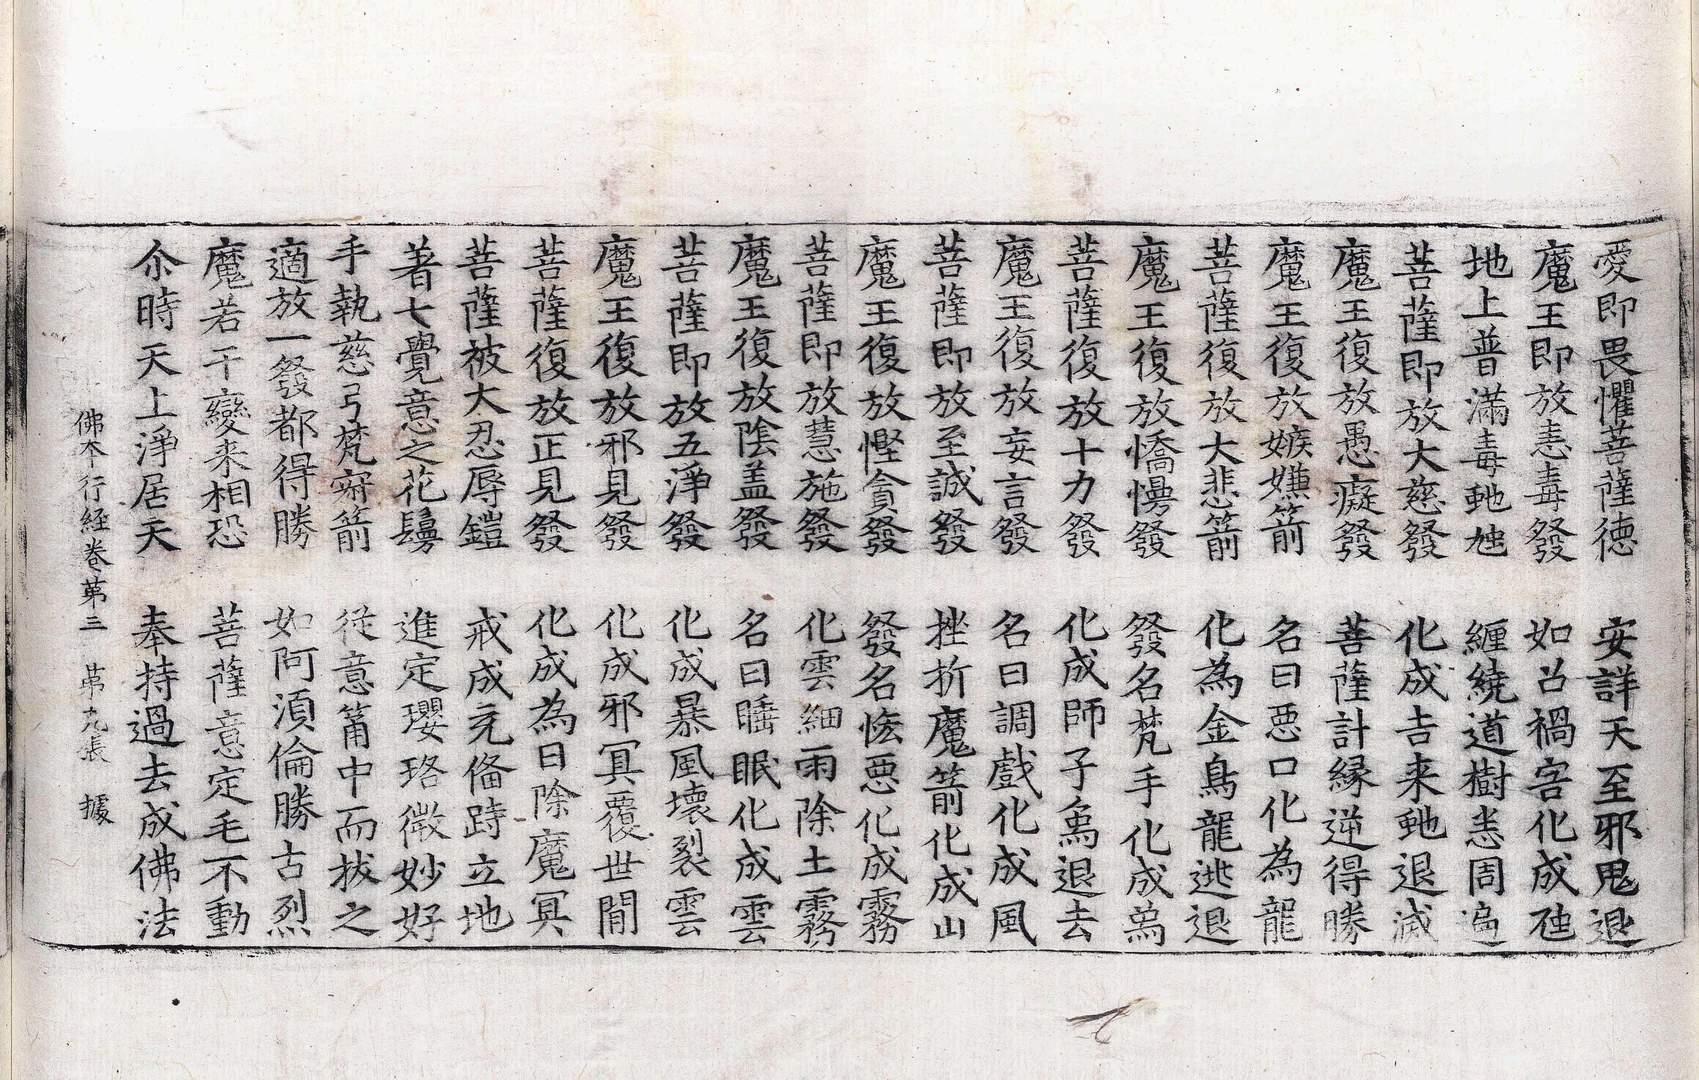 愛即畏懼菩薩德　安詳天至邪鬼退
魔王即放恚毒發　如呂禍害化成虵
地上普滿毒虵虺　纏繞道樹恚周遍
菩薩即放大慈發　化成吉来虵退滅
魔王復放愚癡發　菩薩計緣逆得勝
魔王復放嫉嫌箭　名曰惡口化為龍
菩薩復放大悲箭　化為金鳥龍逃退
魔王復放憍慢發　發名梵手化成為
菩薩復放十力發　化成師子烏退去
魔王復放妄言發　名曰調戲化成風
菩薩即放至誠發　挫折魔箭化成山
魔王復放慳貪發　發名恡惡化成霧
菩薩即放慧施發　化雲細雨除土霧
魔王復放陰盖發　名曰睡眠化成雲
菩薩即放五淨發　化成暴風壞裂雲
魔王復放邪見發　化成邪冥覆世間
菩薩復放正見發　化成為日除魔冥
菩薩被大忍辱鎧　戒成充俻跱立地
著七覺意之花鬘　進定瓔珞微妙好
手執慈弓梵窮箭　從意箭中而拔之
適放一發都得勝　如阿湏倫勝古烈
魔若干變来相恐　菩薩意定毛不動
尒時天上淨居天　奉持過去成佛法
佛夲行経卷苐三　苐九張　據